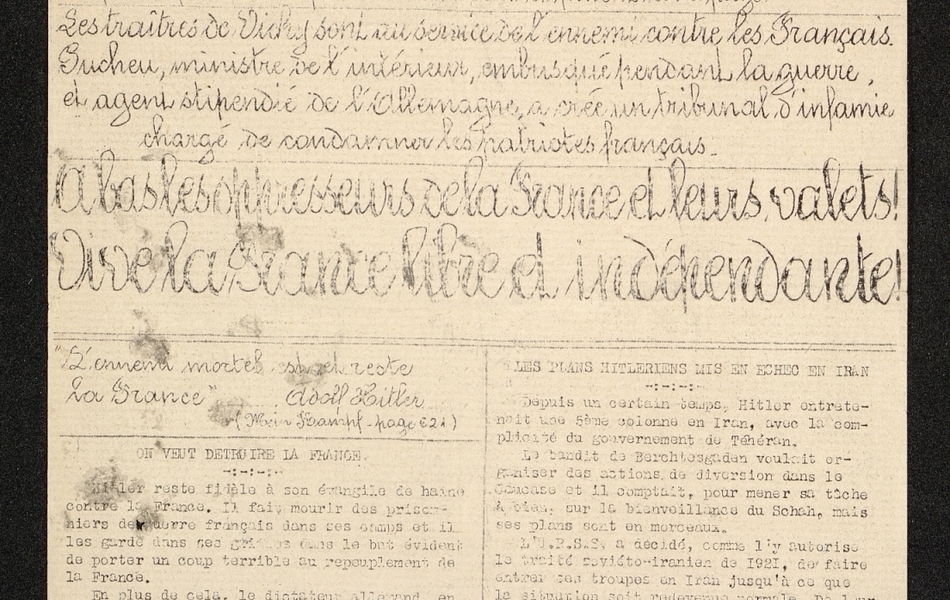 Les traîtres de Vichy sont au service de l'ennemi contre les Français.
Pucheu, ministre de l'intérieur, embusqué pendant la guerre,
et agent stipendié de l'Allemagne, a créé un tribunal d'infamie
chargé de condamner les patriotes français.
A bas les oppresseurs de la France et leurs valets!
Vive la France libre et indépendante!
"L'ennemi mortel est et reste
la France" Adolf Hitler
(Mein Kampf - page 621)
ON VEUT DETRUIRE LA FRANCE.
-:-:-:-
Hitler reste fidèle à son évangile de haine
contre la France. Il fait mourir des prison-
niers de guerre français dans ses camps et il
les garde dans ses dans le but évident
de porter un coup terrible au repeuplement de
la France.
En plus de cela, le dictateur allemand, en
LES PLANS HITLERIENS MIS EN ECHEC EN IRAN
-:-:-:-
Depuis un certain temps, Hitler entrete-
nait une 5ème colonne en Iran, avec la com-
plicité du gouvernement de Téhéran.
Le bandit de Berchtesgaden voulait or-
ganiser des actions de diversion dans le
Caucase et il comptait, pour mener sa tâche
à bien, sur la bienveillance du Schah, mais
ses plans sont en morceaux.
L'U.R.S.S. a décidé, comme l'y autorise
le traité soviéto-iranien de 1921, de faire
entrer ses troupes en Iran jusqu'à ce que
la situation soit redevenue normale. De leur